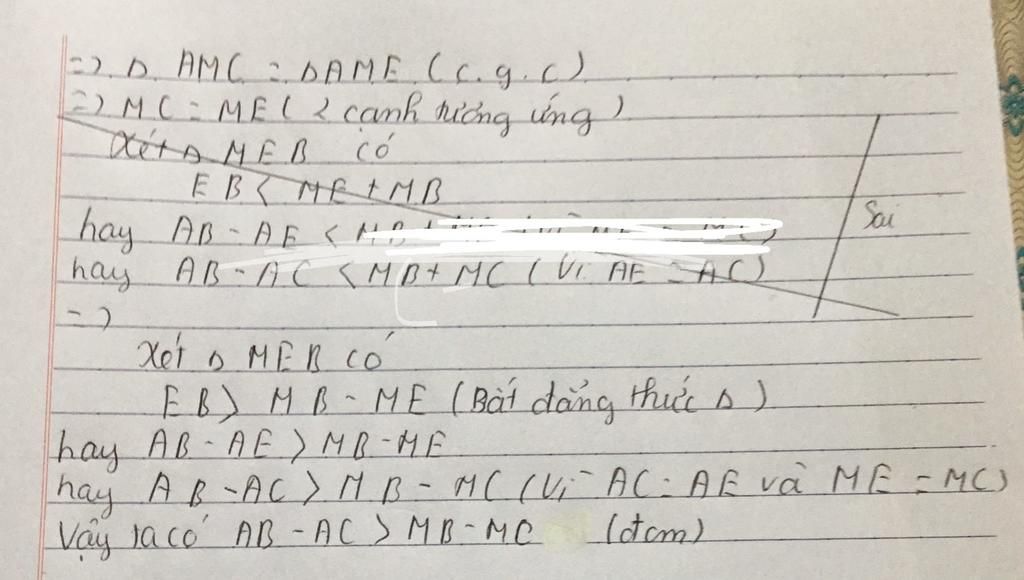 =) Δ AMC = ΔAME (c.g.c)
=) MC = ME (2 cạnh tương ứng)
Xét Δ MEB có
EB < ME + MB
hay AB - AE <
hay AB - AC < MB + MC (Vì AE = AC)
Sai
=)
Xét Δ MEB có
EB > MB - ME (Bất đẳng thức Δ)
hay AB - AE > MB - ME
hay AB - AC > MB - MC (Vì AC = AE và ME = MC)
Vậy ta có AB - AC > MB - MC (đcm)